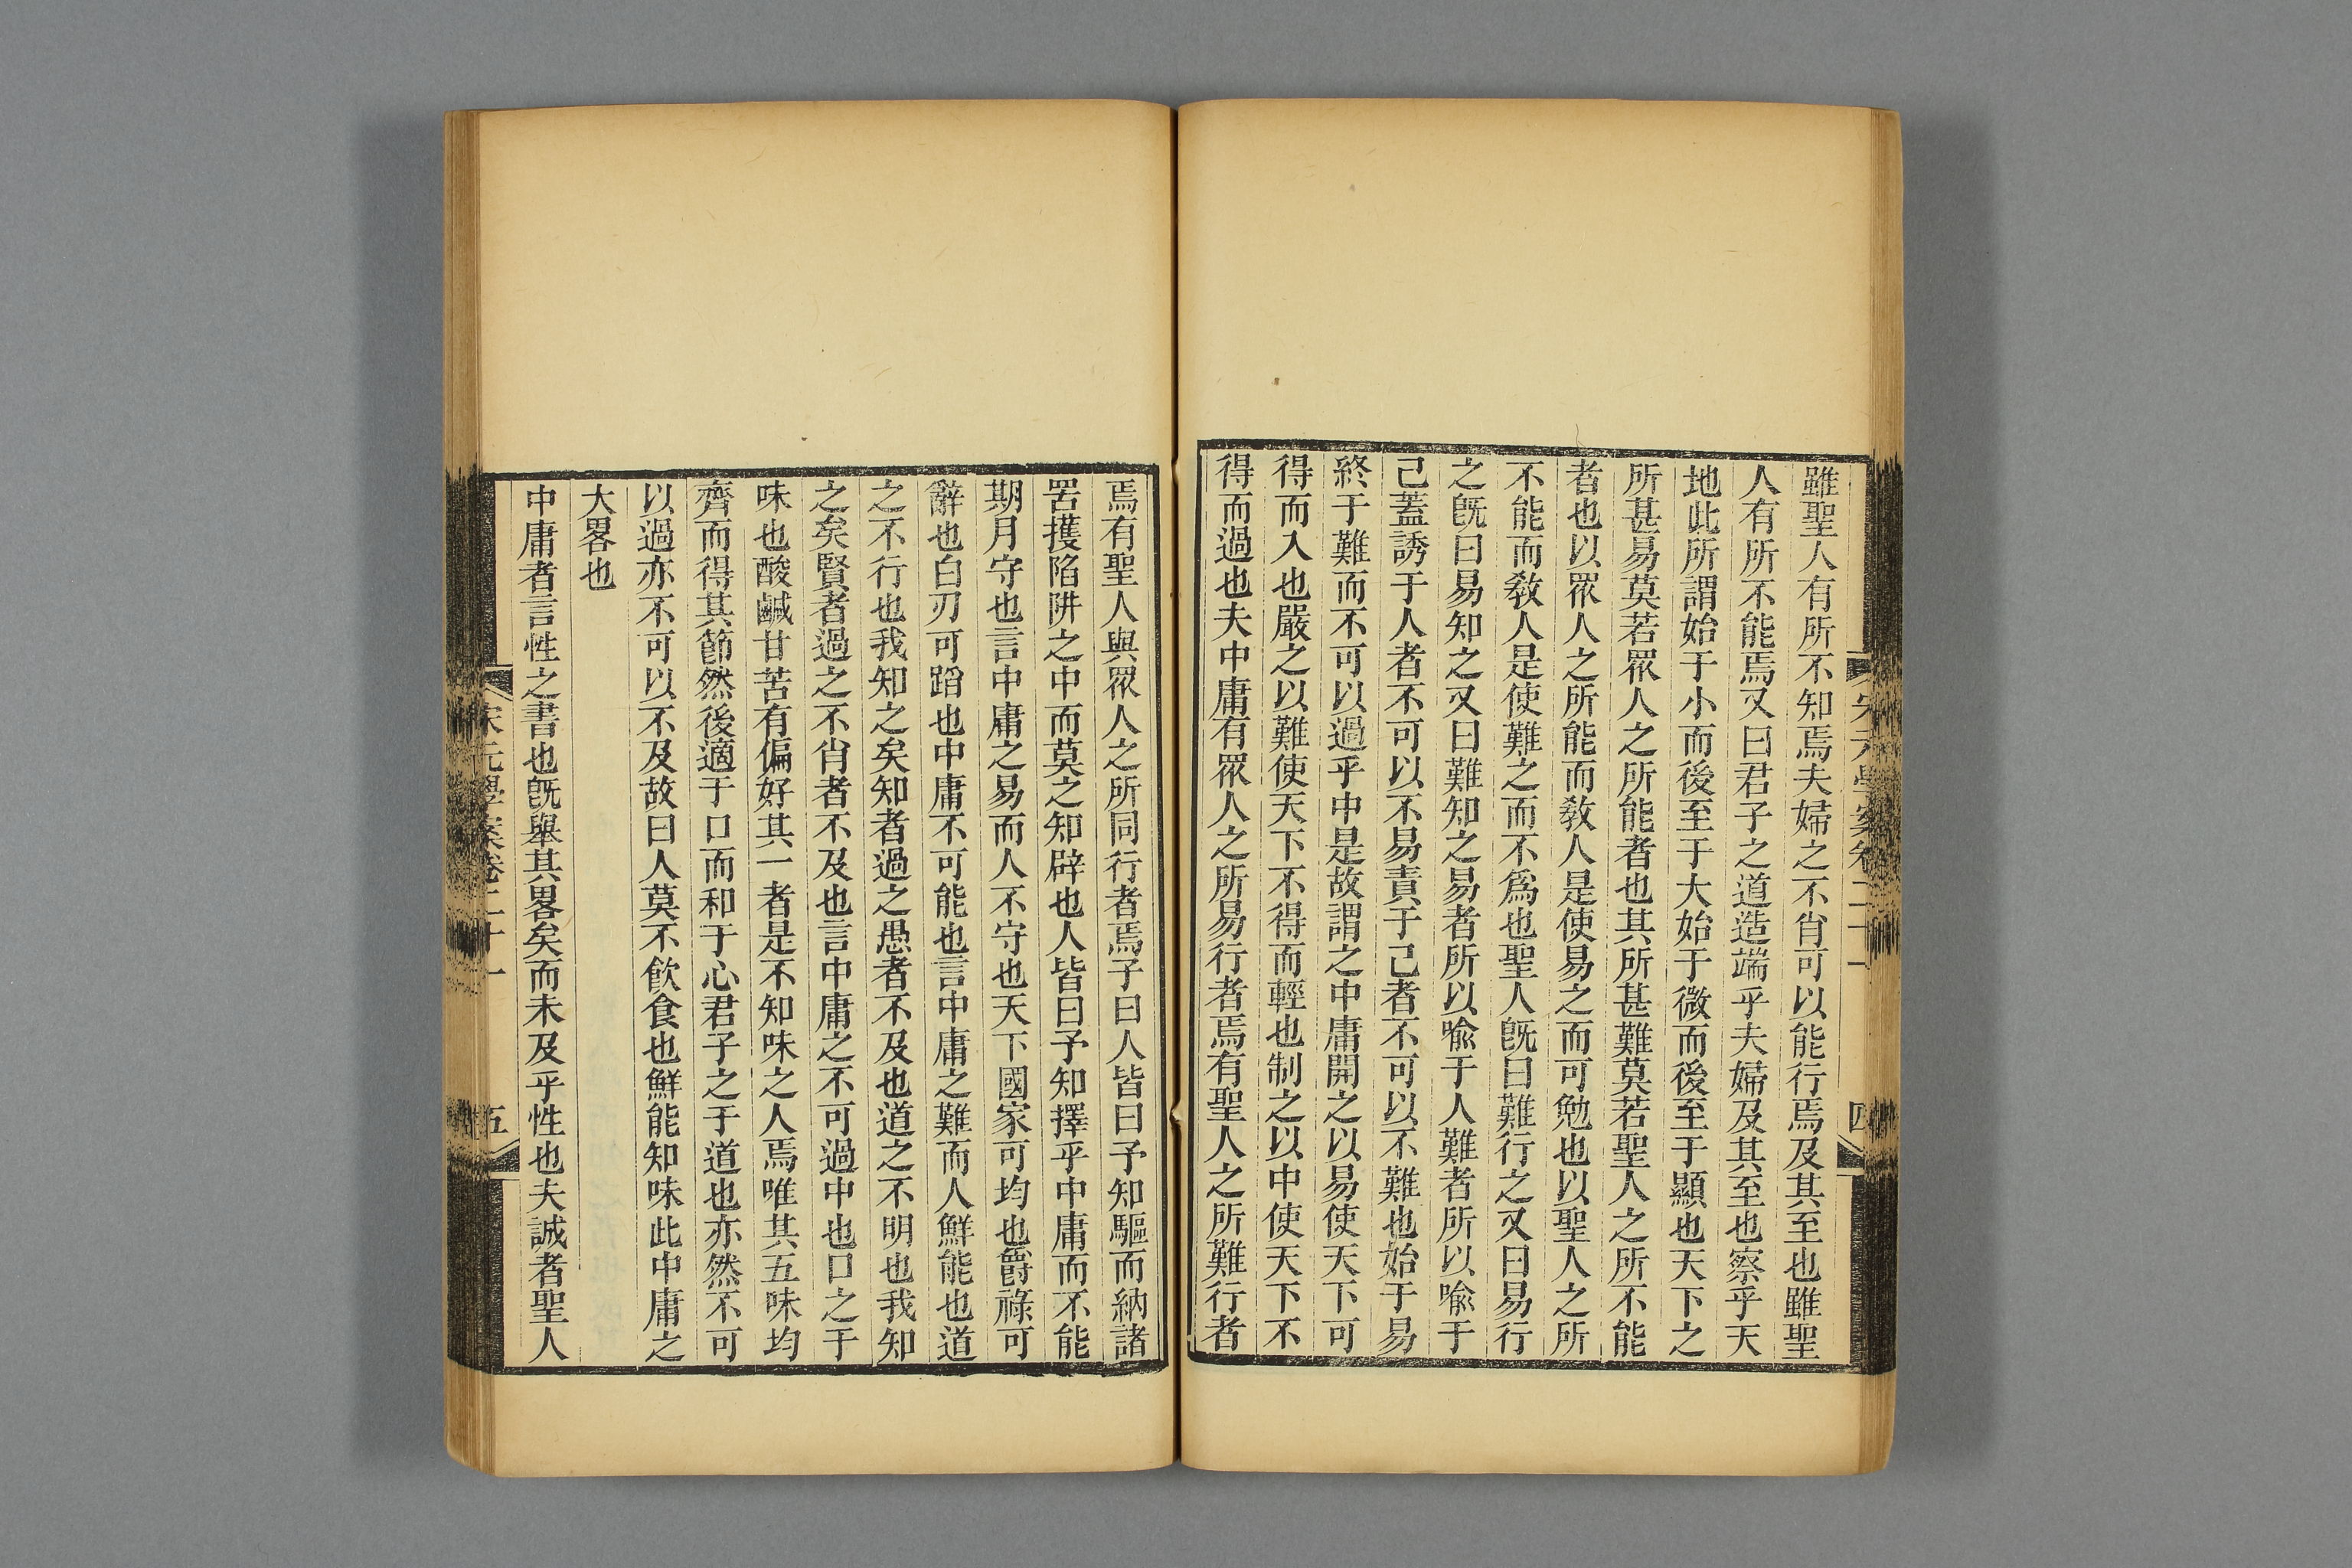 雖聖人有所不知焉夫婦之不肖可以能行焉及其至也雖聖
人有所不能焉又曰君子之道造端乎夫婦及其至也察乎天
地此所謂始于小而後至于大始于微而後至于顯也天下之
所甚易莫若眾人之所能者也其所甚難莫若聖人之所不能
者也以眾人之所能而敎人是使易之而可勉也以聖人之所
不能而敎人是使難之而不爲也聖人旣曰難行之又曰易行
之旣曰易知之又曰難知之易者所以喩于人難者所以喩于
己蓋誘于人者不可以不易責于己者不可以不難也始于易
終于難而不可以過乎中是故謂之中庸開之以易使天下可
得而入也嚴之以難使天下不得而輕也制之以中使天下不
得而過也夫中庸有眾人之所易行者焉有聖人之所難行者
宋元學案卷二十一
四
焉有聖人與眾人之所同行者焉子曰人皆曰予知驅而納諸
罟擭陷阱之中而莫之知辟也人皆曰予知擇乎中庸而不能
期月守也言中庸之易而人不守也天下國家可均也爵祿可
辭也白刃可蹈也中庸不可能也言中庸之難而人鮮能也道
之不行也我知之矣知者過之愚者不及也道之不明也我知
之矣賢者過之不肖者不及也言中庸之不可過中也口之于
味也酸鹹甘苦有偏好其一者是不知味之人焉唯其五味均
齊而得其節然後適于口而和于心君子之于道也亦然不可
以過亦不可以不及故曰人莫不飮食也鮮能知味此中庸之
大畧也
中庸者言性之書也旣舉其畧矣而未及乎性也夫誠者聖人
宋元學案卷二十一
五